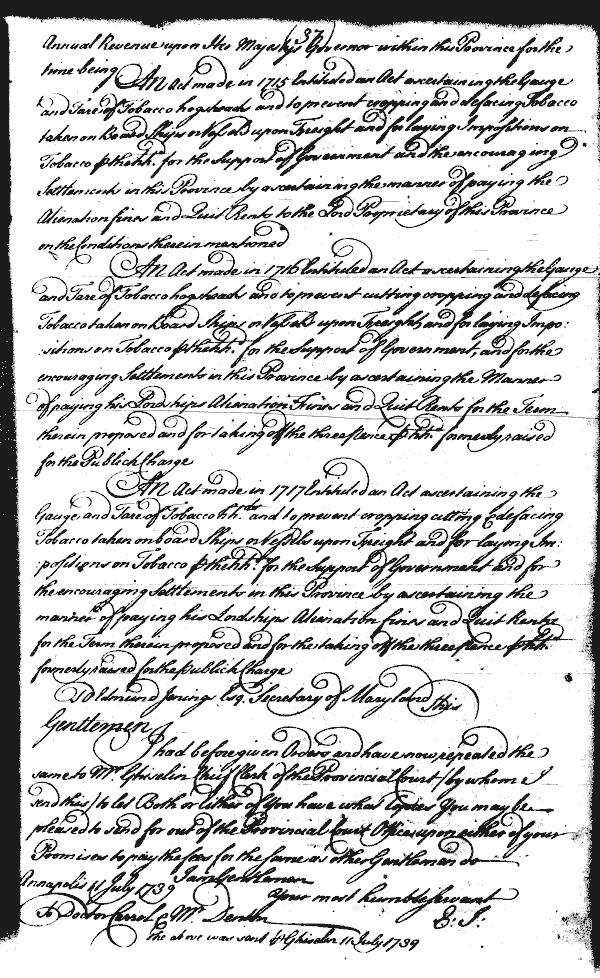 (37)
Annual Revenue upon Her Majestys Governor within this Province for the
time being
An Act made in 1715 Entituled an Act ascertaining the Gauge
and Tare of Tobacco hogsheads and to prevent cropping and defacing Tobacco
taken on Board Ships or Vessells upon Freight and for laying Impositions on
Tobacco p the hhd. for the Support of Government and the encouraging
Settlements in this Province by ascertaining the manner of paying the
Alienation fines and Quit Rents to the Lord Proprietary of this Province
on the Conditions therein mentioned
An Act made in 1716 Entituled an Act ascertaining the Gauge
and Tare of Tobacco hogsheads and to prevent cutting cropping and defacing
Tobacco taken on Board Ships or Vessells upon Freight and for laying Impo:
:sitions on Tobacco p the hhd. for the Support of Government, and for the
encouraging Settlements in this Province by ascertaining the Manner
of paying his Lordships Alienation Fines and Quit Rents for the Term
therein proposed and for taking off the three Pence p hhd. formerly raised
for the Publick Charge
An Act made in 1717 Entituled an Act ascertaining the
Gauge and Tare of Tobacco hhds. and to prevent cropping cutting & defacing
Tobacco taken on board Ships or Vessels upon Freight and for laying Im:
:positions on Tobacco p the hhd. for the Support of Government and for
the encouraging Settlements in this Province by ascertaining the
manner of paying his Lordships Alienation fines and Quit Rents
for the Term therein proposed and for the taking off the three Pence p hhd.
formerly raised for the Publick Charge
To Edmund Jenings Esq. Secretary of Maryland this
Genttemen
I had before given Orders and have now repeated the
same to Mr. Ghiselin Chief Clerk of the Provincial Court /by whom I
send this/ to let Both or Either of You have what Copies You may be
pleased to send for out of the Provincial Court Office upon either of your
Promises to pay the fees for the same as other Gentlemen do
I am Gentlemen
Annapolis 11 July 1739
Your most humble Servant
To Doctor Carrol & Mr. Denton
E: J:
The above was sent p Ghiselin 11 July 1739